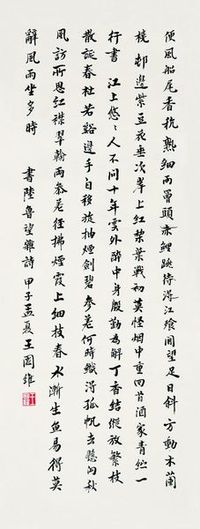 便風船尾香秔熟細雨罾頭赤鯉跳待得江飡閑望足日斜方動木蘭
橈 邨邊紫豆花垂次岸上紅梨葉戰初莫怪烟中重回首酒家青紵一
行書 江上悠悠人不問十年雲外醉中身殷勤為解丁香結縱放繁枝
散誕春 杜若谿邊手自移旋抽煙劍碧參差何時織得孤帆去懸向秋
風訪所思 紅襟翠翰兩參差徑拂煙霞上細枝春水漸生魚易得莫
辭風雨坐多時 書陸魯望雜詩 甲子孟夏王國維